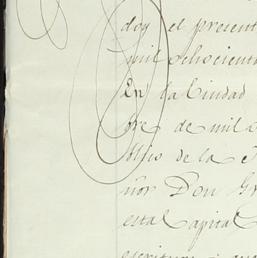 doy el present
mil ochocient
En la Ciudad
bre de mil
blico de la
ñor Don Gr
esta Capital
escritura